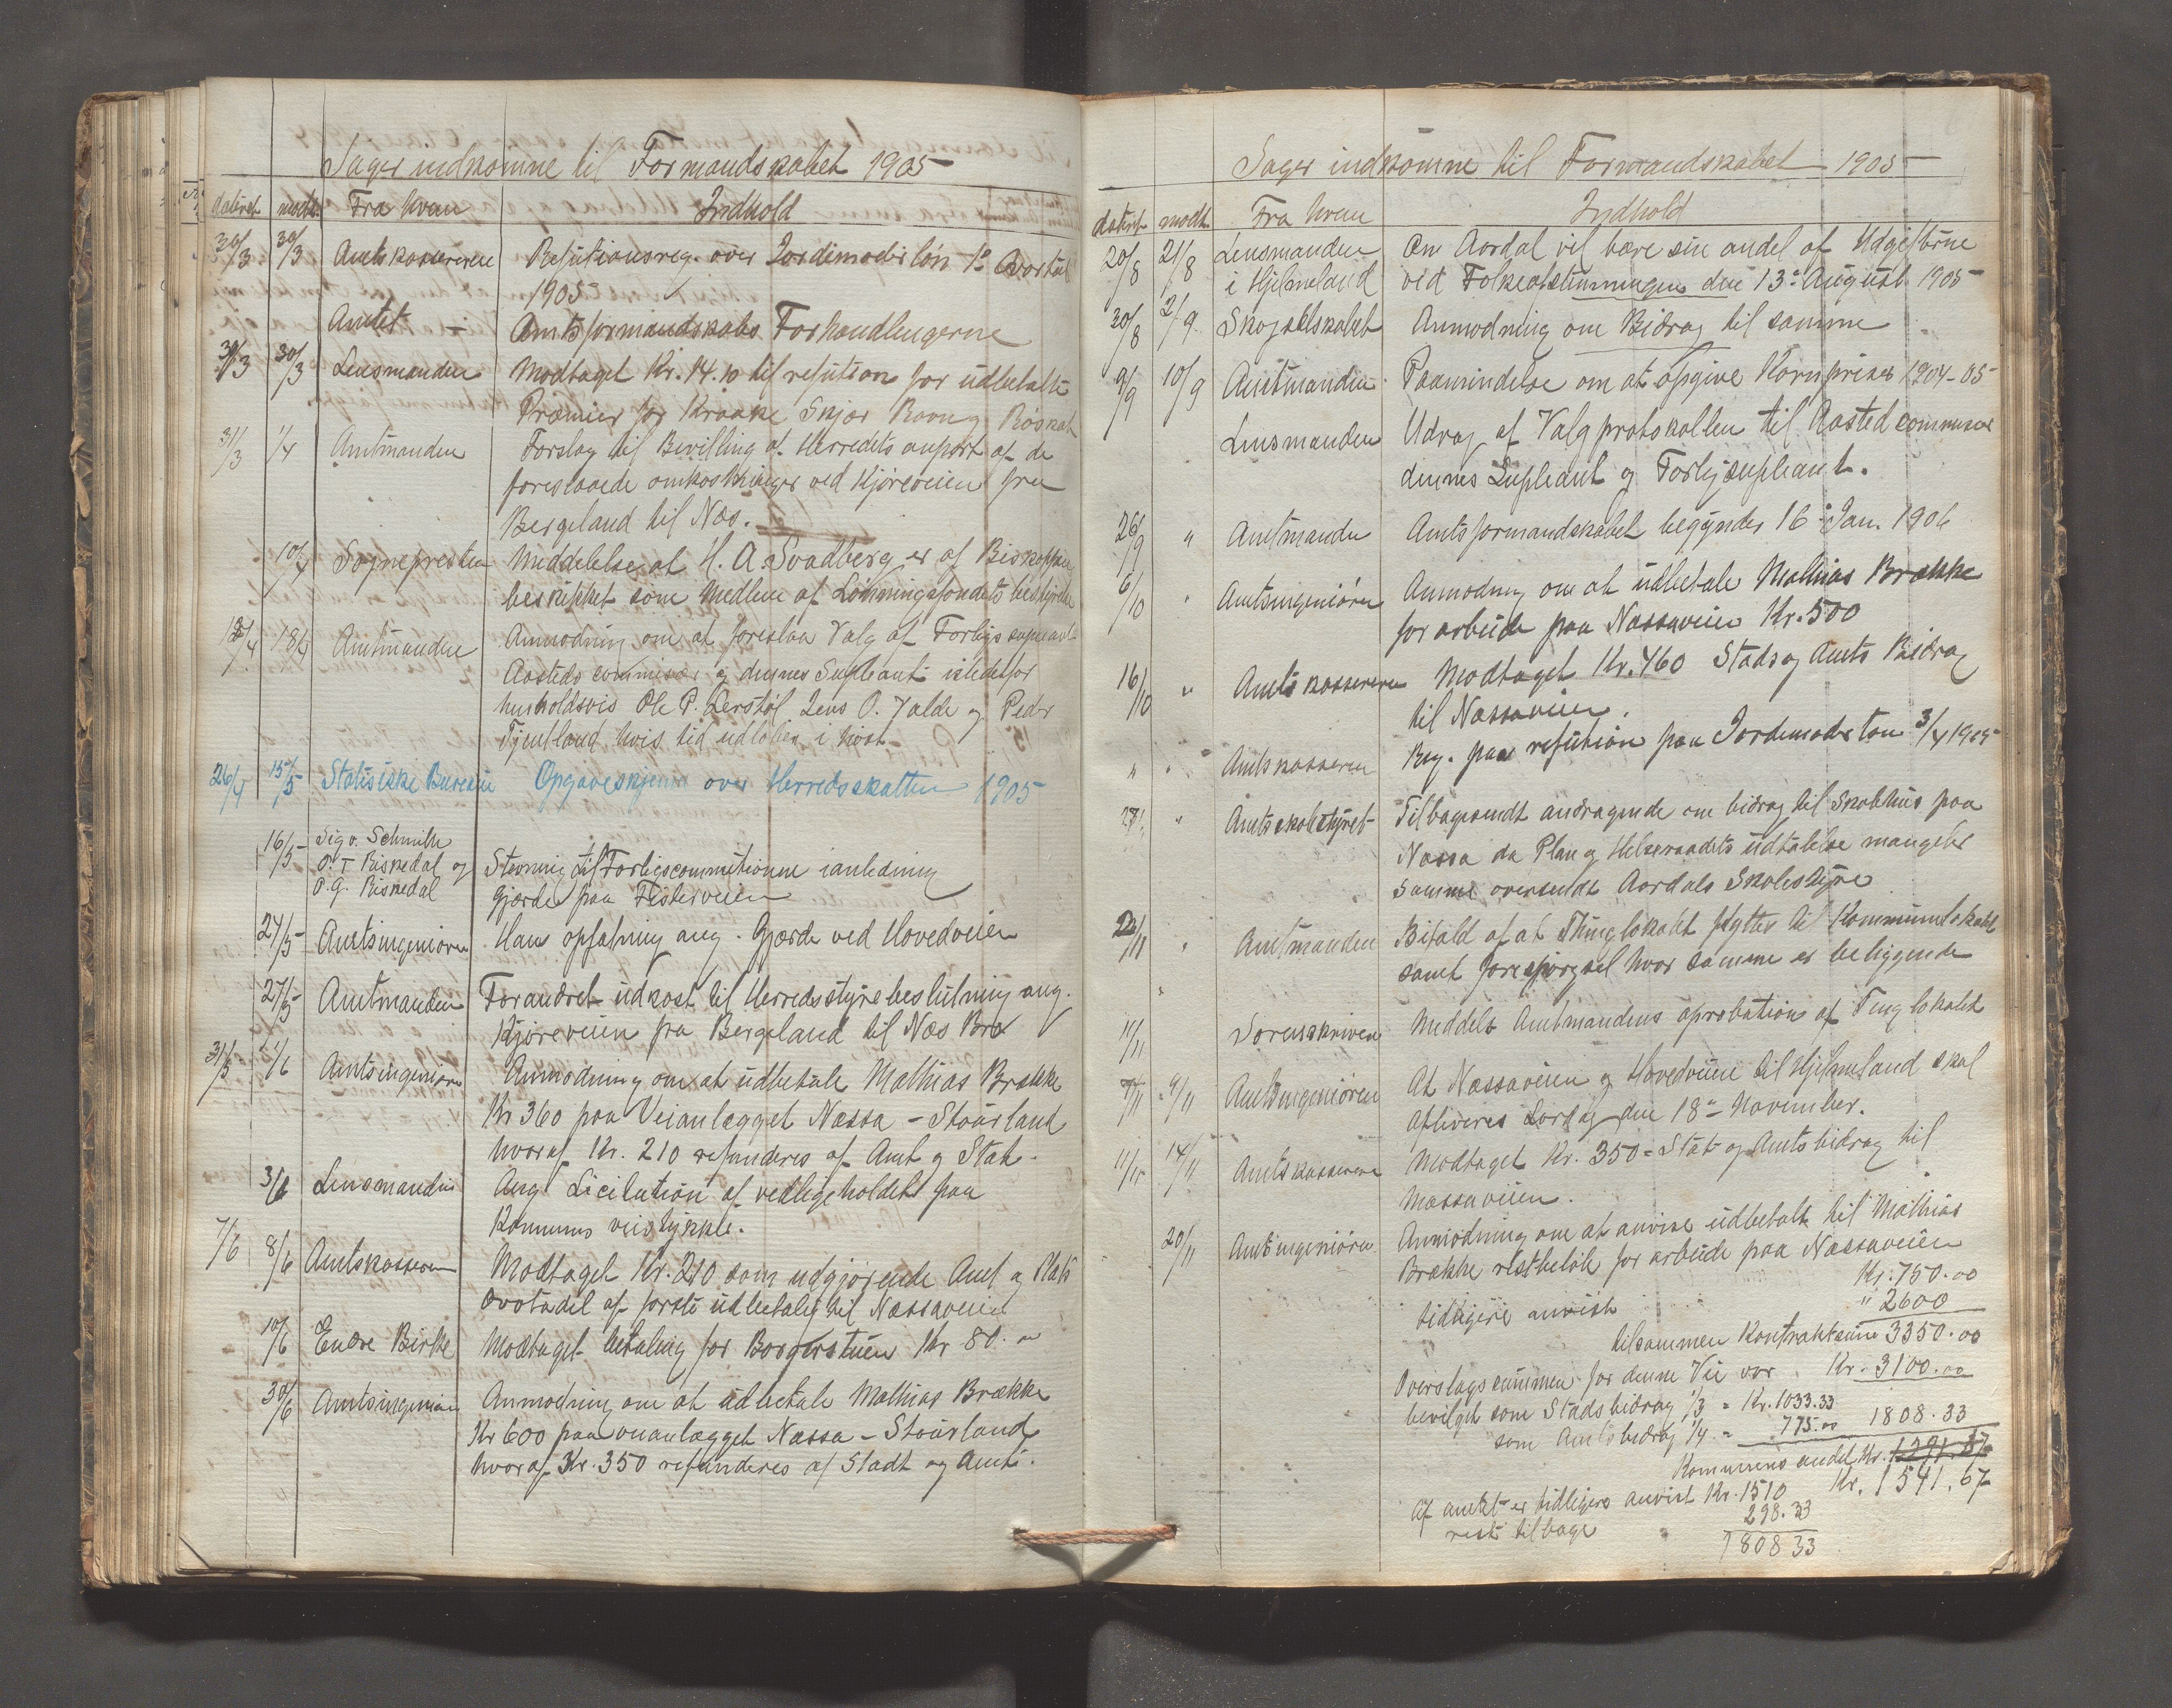 Sager indkomne til Formandskabet 1905
dateret modt. Fra hvem Indhold
30/3 30/3 Amtskassereren Refutionsreg. over Jordemoderløn 1ste Qvartal
1905
Amtet - Amtsformandskabs Forhandlingerne
30/3 30/3 Lensmanden Modtaget Kr. 14.10 til refution for udbetalte
Præmier for Kraake Skjær Ravn og Røskat
31/3 1/4 Amtmanden Forslag til Bevilling af Herredets anpart af de
foreslaaede omkostninger ved Kjøreveien fra
Bergeland til Næs.
10/4 Sognepresten Meddelelse at H. A. Svadberg er af Biskoppen
beskikket som Medlem af Lønningsfondets bestyrelse
12/4 18/4 Amtmanden Anmodning om at foreslaa Valg af Forligssupleant
Aasteds commisær og dennes Supleant istedetfor
husholdsvis Ole P. Lerstøl Jens O. Valde og Peder
Tjentland hvis tid udløber i høst
26/4 15/5 Statistiske Bureau Opgaveskjema over Herredsskatten 1905
16/5 Sig v. Schmidt
O. T Riskedal og
O. G. Riskedal
Stevning til Forligscommitionen ianledning
Gjærde paa Fisterveien
24/5 Amtsingeniøren Hans opfatning ang. Gjærde ved Hovedveien
27/5 Amtmanden Forandret udkast til Herredsstyrebeslutning ang.
Kjøreveien fra Bergeland til Næs Bro
31/5 1/6 Amtsingeniøren Anmodning om at udbetale Mathias Brække
Kr 360 paa Veianlægget Næssa - Stourland
hvoraf Kr. 210 refunderes af Amt og Stat.
3/6 Lensmanden Ang Licitation af vedligeholdelse paa
Komunens veistykke.
7/6 8/6 Amtskasseren Modtaget Kr. 210 som udgjørende Amt og Stats
qvotadel af første udbetaling til Næssaveien
10/6 Endre Birke Modtaget betaling for Borgerstuen Kr 80.
30/6 Amtsingeniøren Anmodning om at udbetale Mathias Brække
Kr 600 paa veianlægget Næssa - Stourland
hvoraf Kr. 350 refunderes af Stadt og Amt.
Sager indkomne til Formandskabet 1905
dateret modt. Fra hvem Indhold
20/8 21/8 Lensmanden Om Aardal vil bære sin andel af Udgifterne
i Hjelmeland ved Folkeafstemningen den 13de August 1905
30/8 2/9 Skogselskabet Anmodning om Bidrag til samme
9/9 10/9 Amtmanden Paamindelse om at opgive Kornpriser 1904-05
Lensmanden Udrag af Valgprotokollen til Aasted commisær
dennes Supleant og Forligsupleant.
26/9 " Amtmanden Amtsformandskabet begynder 16de Jan. 1906
6/10 " Amtsingeniøren Anmodning om at udbetale Mathias Brække
for arbeide paa Næssaveien Kr. 500
16/10 " Amtskassereren Modtaget Kr. 460 Stads og Amts Bidrag
til Næssaveien.
" " Amtskasseren Reg. paa refution paa Jordemoder løn 3/4 1905
27/ " Amtsskolestyret Tilbagesendt andragende om bidrag til Skolehus paa
Næssa da Plan og Helseraadets udtalelse mangeler
Samme oversendt Aardals Skolestyre
2/11 " Amtmanden Bifald af at Thinglokalet flyttes til Kommunelokalet
samt forespørgsel hvor samme er beliggende
11/11 Sorenskriveren Meddelt Amtmandens aprobation af Tinglokalet
7/11 9/11 Amtsingeniøren At Næssaveien og Hovedveien til Hjelmeland skal
afleveres Lørdag den 18de November.
11/11 14/11 Amtskassereren Modtaget Kr. 350 = Stat og Amtsbidrag til
Næssaveien.
20/11 Amtsingeniøren Anmodning om at anvise udbetalt til Mathias
Brække restbeløb for arbeide paa Næssaveien
Kr. 750.00
tidligere anvist " 2600
tilsammen Kontraktssum 3350.00
Overslagssummen for denne Vei var Kr. 3100.00
bevilget som Stadsbidrag 1/3 = Kr. 1033.33
som Amtsbidrag 1/4 = 775.00 1808.33
Kommunens andel Kr. 1291.67
Kr. 1541.67
Af amtet er tidligere anvist Kr. 1510
rest tilbage 298.33
1808 33